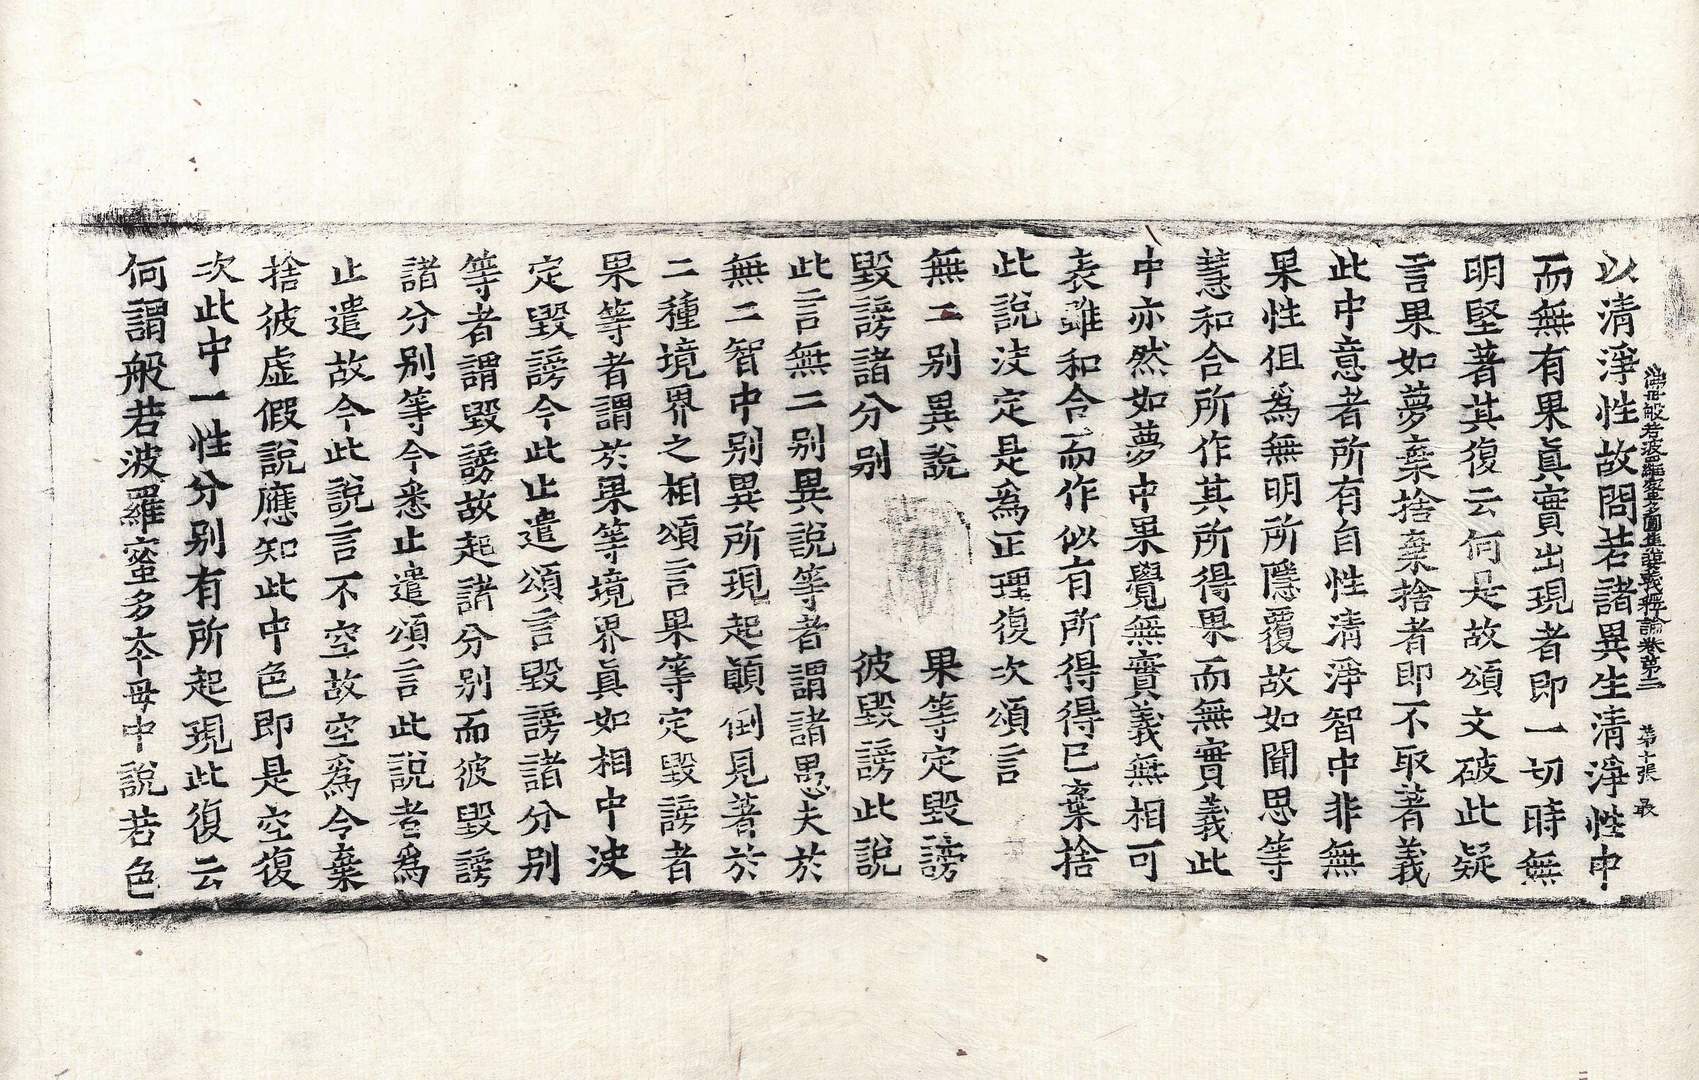 佛母般若波羅蜜多圓集要義釋論卷第三　第十張　最
以清淨性故問若諸異生清淨性中
而無有果眞實出現者即一切時無
明堅著其復云何是故頌文破此疑
言果如夢棄捨棄捨者即不取著義
此中意者所有自性清淨智中非無
果性但爲無明所隱覆故如聞思等
慧和合所作其所得果而無實義此
中亦然如夢中果覺無實義無相可
表雖和合而作似有所得得已棄捨
此說決定是爲正理復次頌言
無二別異說　果等定毀謗
毀謗諸分別　彼毀謗此說
此言無二別異說等者謂諸愚夫於
無二智中別異所現起顚倒見著於
二種境界之相頌言果等定毀謗者
果等者謂於果等境界眞如相中決
定毀謗今此止遣頌言毀謗諸分別
等者謂毀謗故起諸分別而彼毀謗
諸分別等今悉止遣頌言此說者爲
止遣故今此說言不空故空爲令棄
捨彼虛假說應知此中色即是空復
次此中一性分別有所起現此復云
何謂般若波羅蜜多本母中說若色